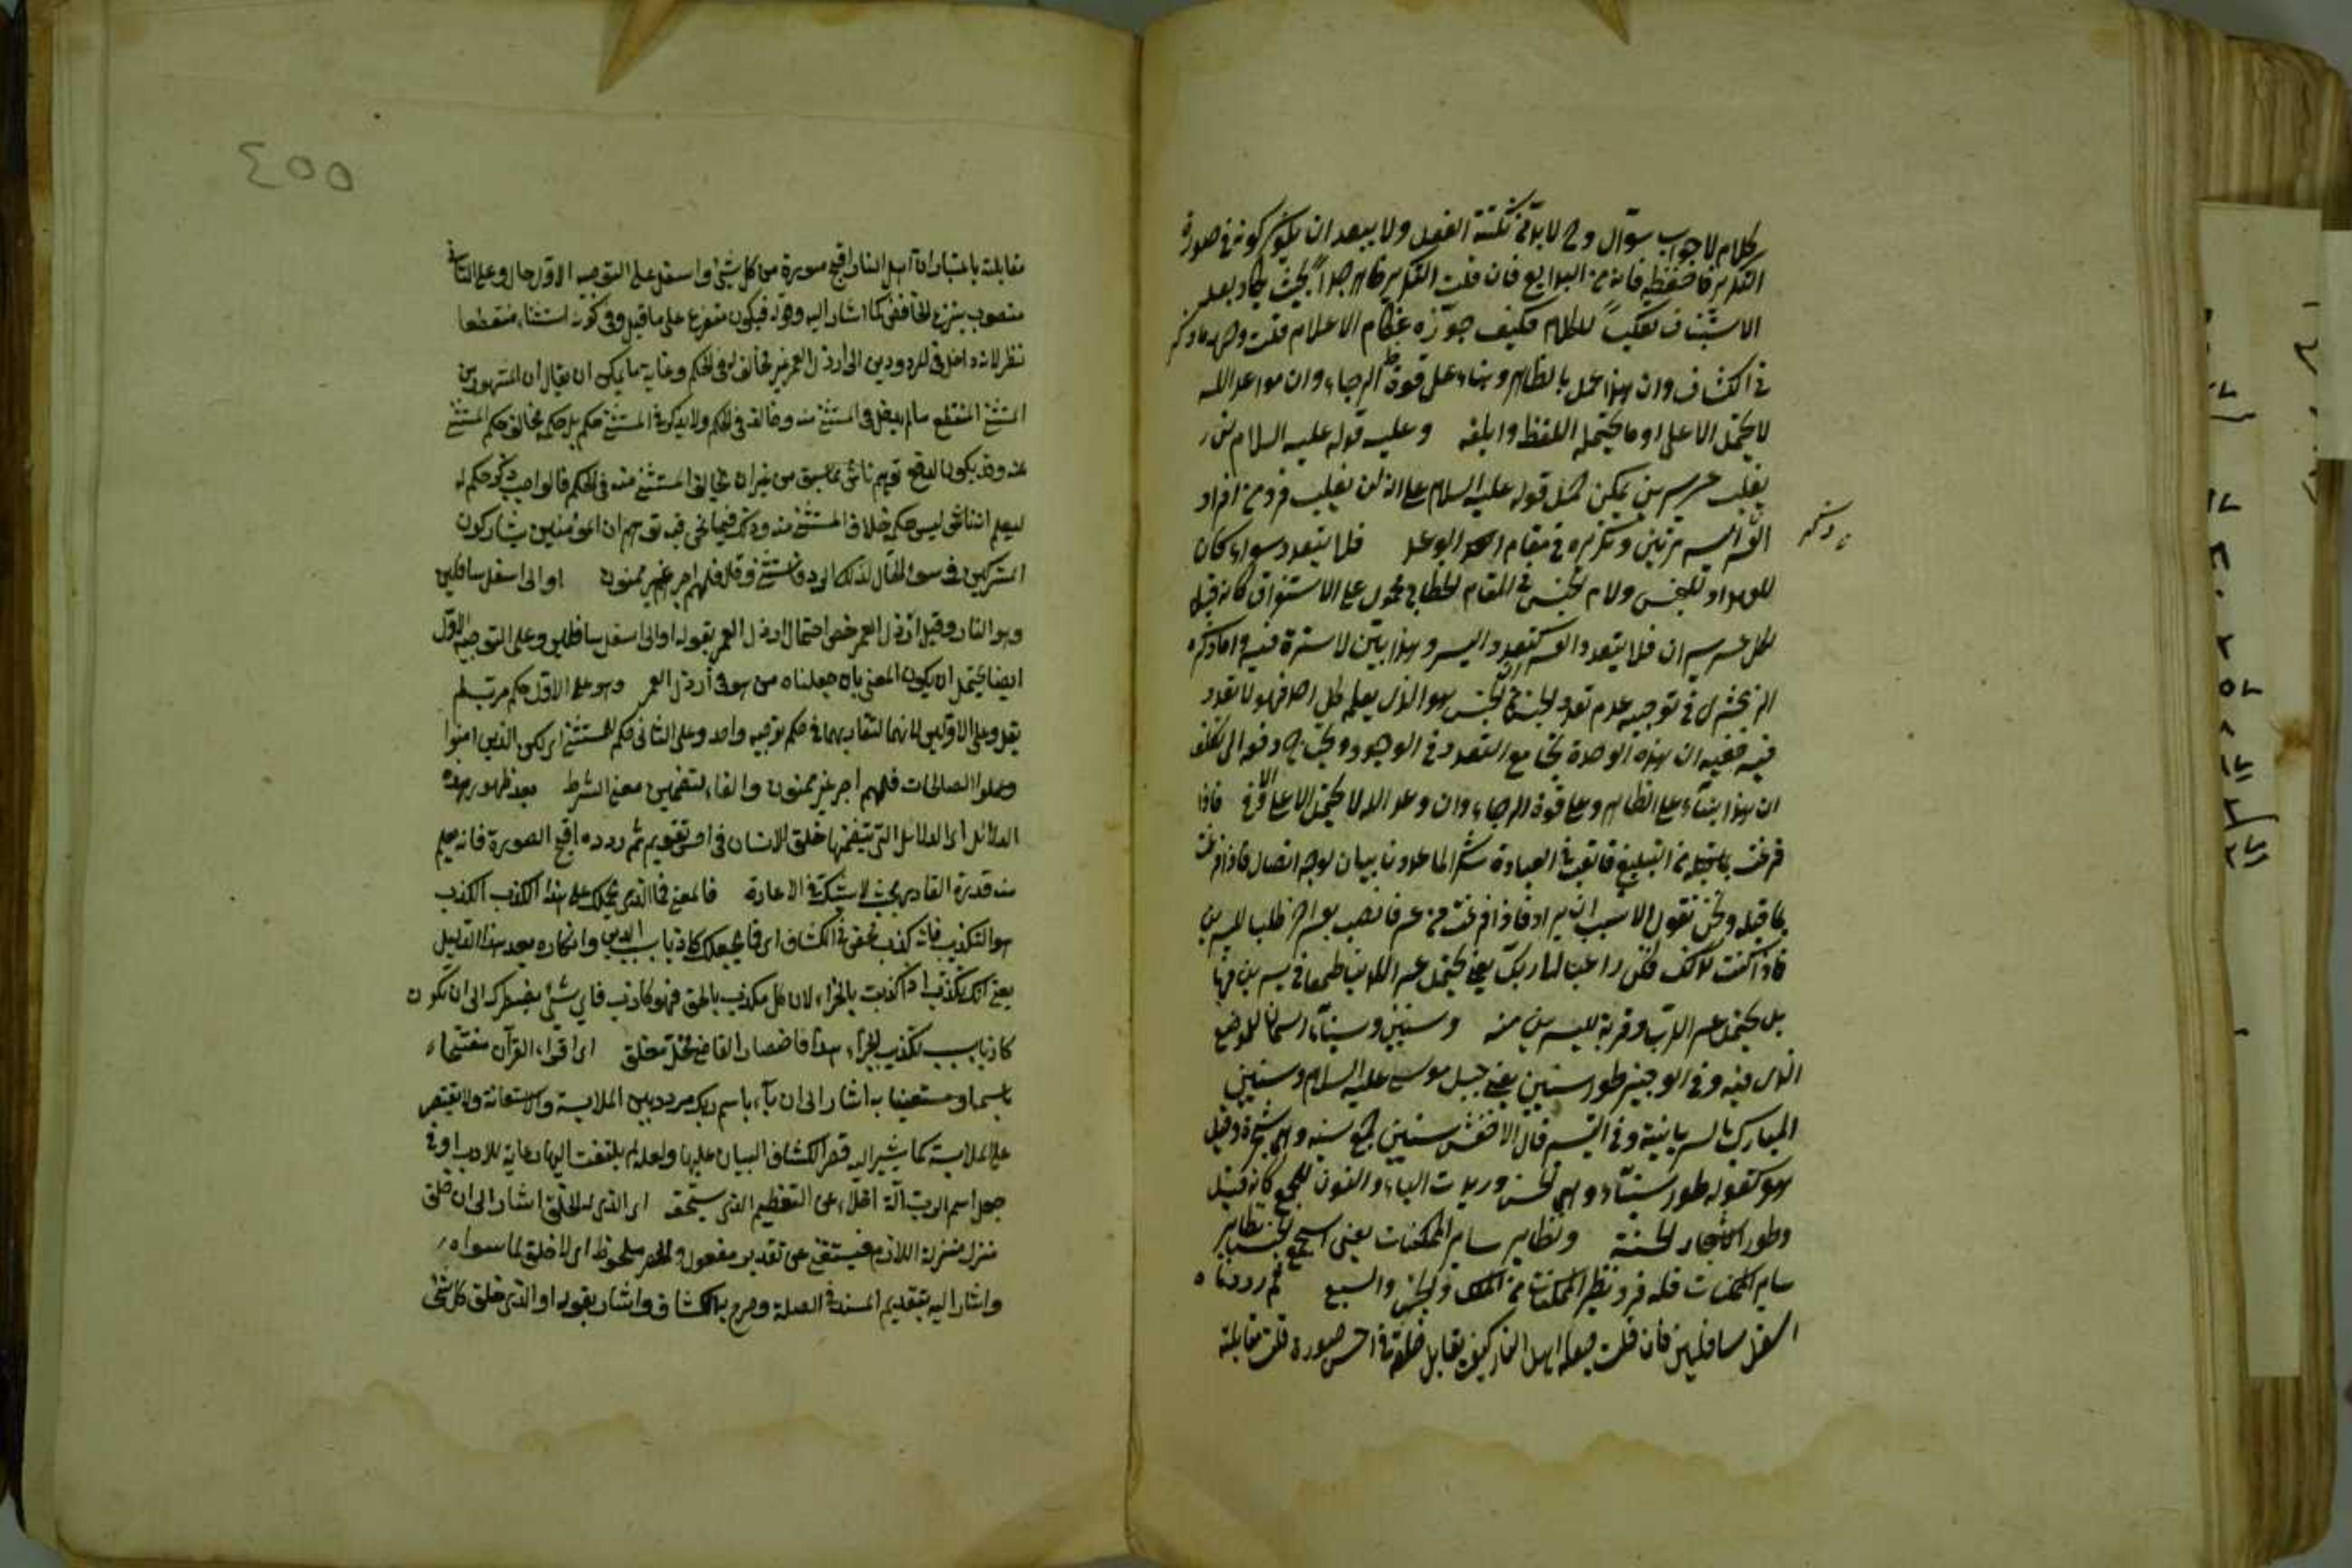 كلام لا جواب سؤال وح لا بد من نكتة الفصل ولا يبعد ان يكون كونه في صورة
التكرير فاحفظه فانه من البدايع فان قلت التكرير ظاهر جدا بحيث يكاد يعد
الاستيناف تعكيسا للكلام فكيف جوزه عظام الاعلام قلت وجهه ما ذكر
في الكشاف وان هذا عمل بالظاهر وبناء على قوة الرجاء وان مواعد الله
لا يحتمل الا على اوفى ما يحتمله اللفظ وابلغه وعليه قوله عليه السلام لن
يغلب عسر يسرين يمكن حمل قوله عليه السلام على انه لن يغلب فرد من افراد
العسر اليسر مرتين وتكريره في مقام الوعد فلا يتعدد سواء كان
للعهد او للجنس ولام الجنس في المقام الخطابي محمول على الاستغراق كانه قيل
لكل عسر يسران فلا يتعدد العسر كتعدد اليسر وهذا بين لا سترة فيه واما ذكره
الزمخشري في توجيه عدم تعدد الجنس هو الذي يعلم كل احد فهو لا تعدد
فيه ففيه ان هذه الوحدة تجامع التعدد في الوجود ويحتاج دفعه الى تكلف
ان هذا بناء على الظاهر وعلى قوة الرجاء وان وعد الله لا يحتمل الا على الاوفى فاذا
فرغت من التبليغ فاتعب في العبادة شكرا لما عددنا بيان لوجه اتصال فاذا فرغت
بما قبله ونحن نقول الانسب ان يراد فاذا فرغت من عسر فانصب بعسر اخر طلبا لليسرين
فاذا كنت كذلك فكن راغبا الى ربك يعني لا تحتمل عسر الدنيا طمعا في يسرين فيها
بل تحتمل عسر الرب وقربة لليسرين منه وسينين وسيناء اسمان للموضع
الذي فيه وفي الوجيز طور سينين يعني جبل موسى عليه السلام وسينين
المبارك بالسريانية وفي التيسير قال الاخفش سينين جمع سينه وهي شجرة وقيل
هو كقوله طور سيناء وهي الحسن وزيدت الياء والنون للجمع كانه قيل
وطور الاشجار الحسنة ونظاير ساير الممكنات يعني استجمع لجنس نظاير
ساير الممكنات فله فرد نظير الممكنات من الملك والجن والسبع ثم رددناه
اسفل سافلين فان قلت جعله اهل النار كيف يقابل خلقه في احسن صورة قلت مقابلة
ن وتنكيره
٤٥٥
مقابلته باعتبار ان اهل النار اقبح صورة من كل شئ واسفل على التوجيه الاول حال وعلى الثاني
منصوب بنزع الخافض كما اشار اليه وقوله فيكون متفرع على ما قيل وفي كونه استثناء منقطعا
نظر لانه داخل في المردودين الى ارذل العمر غير مخالف له في الحكم وغاية ما يمكن ان يقال ان المشهور من
المستثنى المنقطع ما لم يدخل في المستثنى منه وخالفه في الحكم ولا يذكر في المستثنى حكم بل حكمه مخالف حكم المستثنى
منه وقد يكون لدفع توهم ناشئ مما سبق من غير ان يخالف المستثنى منه في الحكم فالواجب ذكر حكم له
ليعلم انتفاءه ليس حكمه خلاف المستثنى منه وذلك فيما نحن فيه توهم ان المؤمنين يشاركون
المشركين في سوء الحال لذلك الرد فاستثنى وقال فلهم اجر غير ممنون او الى اسفل سافلين
وهو النار وقيل ارذل العمر خص احتمال ارذل العمر بقوله او الى اسفل سافلين وعلى التوجيه الاول
ايضا يحتمل ان يكون المعنى بان جعلناه من اهل ارذل العمر وهو على الاول حكم مرتب
يعني وعلى الاولين لانهما لتقاربهما في حكم توجيه واحد وعلى الثاني حكم للمستثنى اي لكن الذين امنوا
وعملوا الصالحات فلهم اجر غير ممنون والفاء لتضمين معنى الشرط بعد ظهور هذه
الدلائل اي الدلائل التي يتضمنها خلق الانسان في احسن تقويم ثم رده اقبح الصورة فانه يعلم
منه قدرة القادر بحيث لا يشك في الاعادة فالمعنى فما الذي يحملك على هذا الكذب الكذب
هو التكذيب فانه كذب محض في الكشاف اي فما يجعلك كاذبا بسبب الدين وانكاره بعد هذا الدليل
يعني انك تكذب اذا كذبت بالجزاء لان كل مكذب بالحق فهو كاذب فاي شئ يضطرك الى ان تكون
كاذبا بسبب تكذيب الجزاء هذا فاختصار القاضي مخل مغلق اي اقراء القرآن مفتتحا
باسمه او مستعينا به اشار الى ان باء باسم ربك مردد بين الملابسة والاستعانة ولا يقتصر
على الملابسة كما يشير اليه قصر الكشاف البيان عليها ولعله لم يلتفت اليها رعاية للادب او في
جعل اسم الرب آلة اخلاء عن التعظيم الذي يستحقه اي الذي له الخلق اشار الى ان خلق
منزل منزلة اللازم فيستغنى عن تقدير مفعول والحصر ملحوظ اي لا خالق لما سواه
واشار اليه بتقديم المسند في الصلة وصرح به الكشاف واشار بقوله او الذي خلق كل شئ